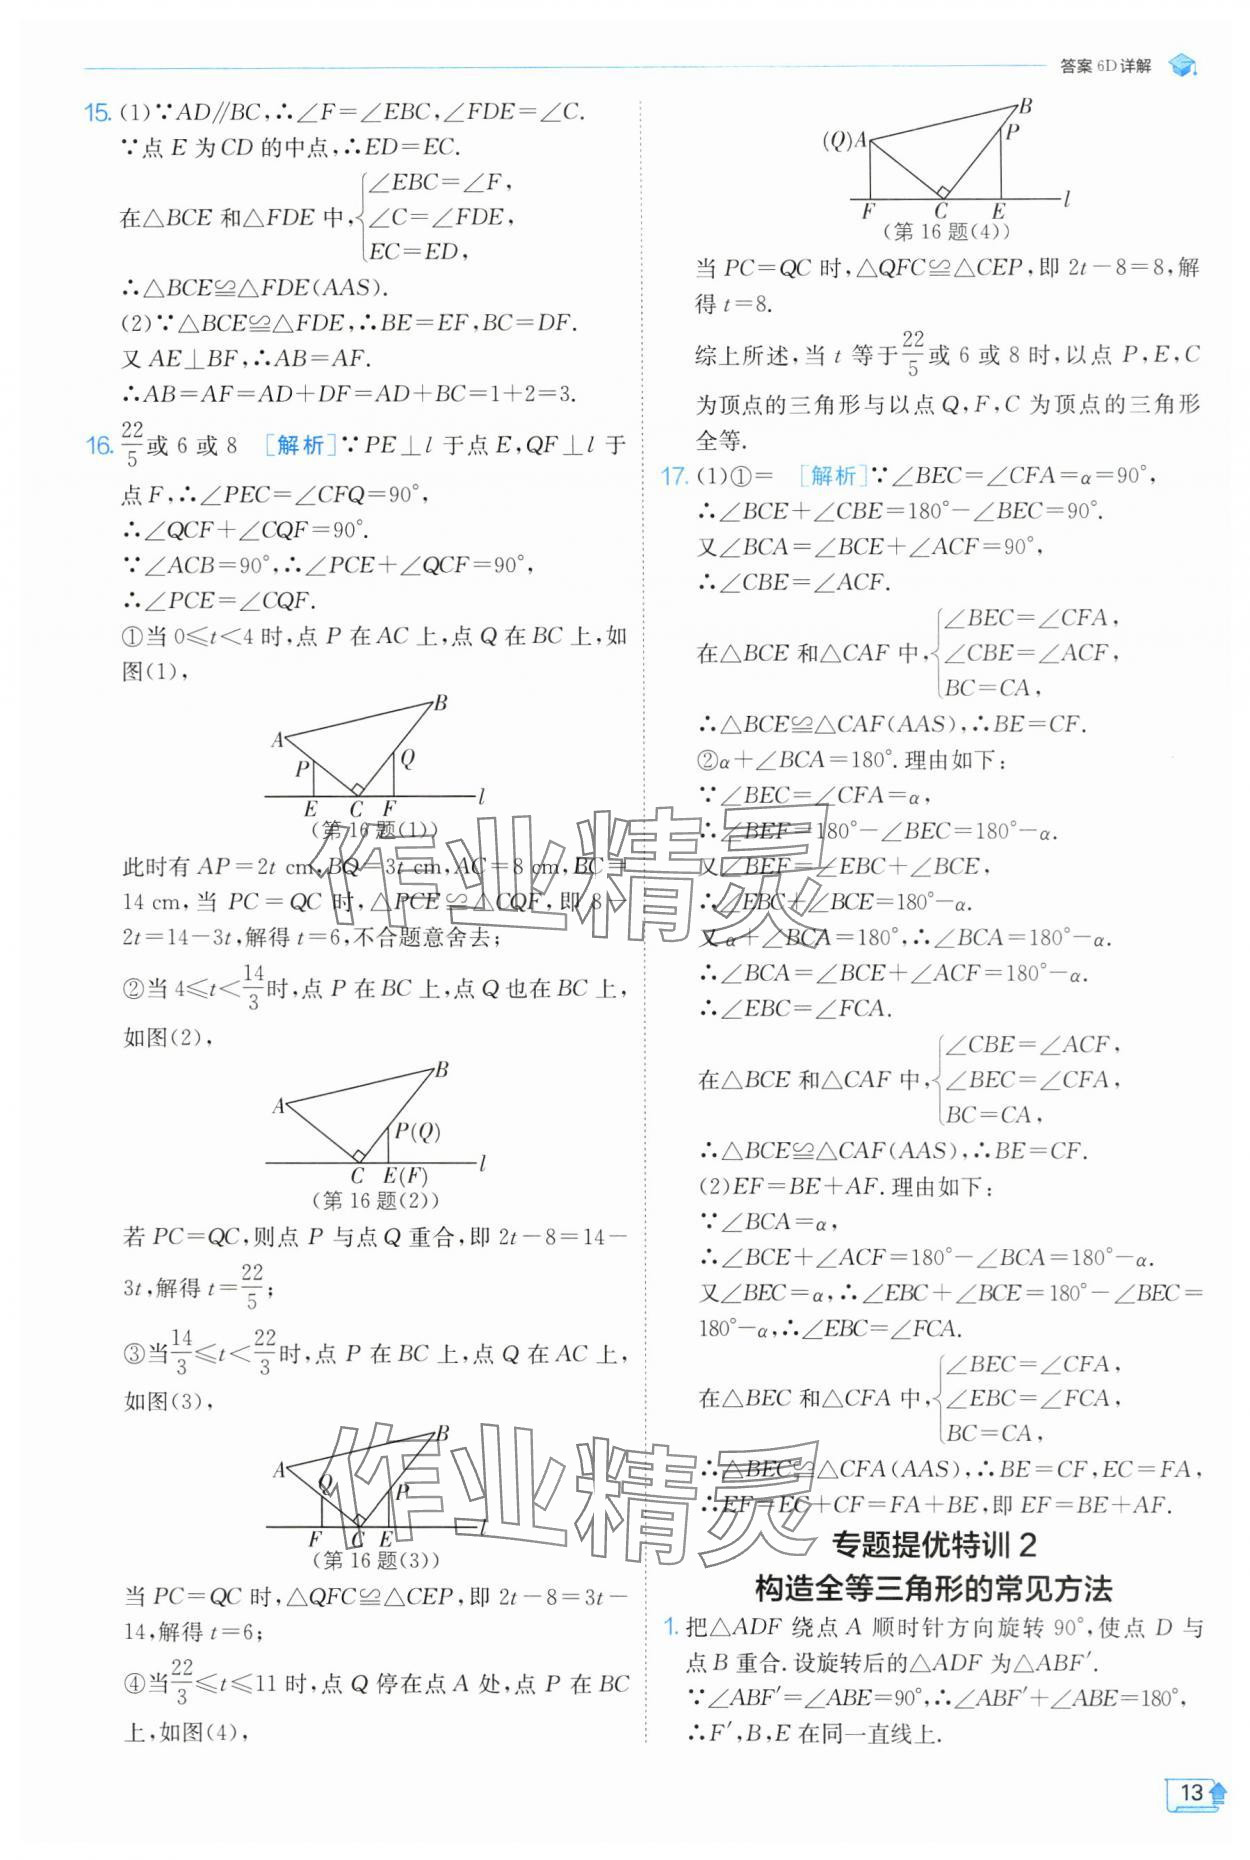 答案 6D 详解
15. (1)∵AD∥BC,∴∠F=∠EBC,∠FDE=∠C.
∵点 E 为 CD 的中点,∴ED=EC.
在△BCE 和△FDE 中,{∠EBC=∠F,
∠C=∠FDE,
EC=ED,
∴△BCE≌△FDE(AAS).
(2)∵△BCE≌△FDE,∴BE=EF,BC=DF.
又 AE⊥BF,∴AB=AF.
∴AB=AF=AD+DF=AD+BC=1+2=3.
16. 22/5 或 6 或 8 [解析]∵PE⊥l 于点 E,QF⊥l 于
点 F,∴∠PEC=∠CFQ=90°,
∴∠QCF+∠CQF=90°.
∵∠ACB=90°,∴∠PCE+∠QCF=90°,
∴∠PCE=∠CQF.
①当 0≤t<4 时,点 P 在 AC 上,点 Q 在 BC 上,如
图(1),
A B P Q E C F l
(第 16 题(1))
此时有 AP=2t cm,BQ=3t cm,AC=8 cm,BC=
14 cm,当 PC=QC 时,△PCE≌△CQF,即 8-
2t=14-3t,解得 t=6,不合题意舍去;
②当 4≤t<14/3时,点 P 在 BC 上,点 Q 也在 BC 上,
如图(2),
A B P(Q) C E(F) l
(第 16 题(2))
若 PC=QC,则点 P 与点 Q 重合,即 2t-8=14-
3t,解得 t=22/5;
③当14/3≤t<22/3时,点 P 在 BC 上,点 Q 在 AC 上,
如图(3),
A B Q P F C E l
(第 16 题(3))
当 PC=QC 时,△QFC≌△CEP,即 2t-8=3t-
14,解得 t=6;
④当22/3≤t≤11 时,点 Q 停在点 A 处,点 P 在 BC
上,如图(4),
(Q)A B P F C E l
(第 16 题(4))
当 PC=QC 时,△QFC≌△CEP,即 2t-8=8,解
得 t=8.
综上所述,当 t 等于22/5或 6 或 8 时,以点 P,E,C
为顶点的三角形与以点 Q,F,C 为顶点的三角形
全等.
17. (1)①= [解析]∵∠BEC=∠CFA=α=90°,
∴∠BCE+∠CBE=180°-∠BEC=90°.
又∠BCA=∠BCE+∠ACF=90°,
∴∠CBE=∠ACF.
在△BCE 和△CAF 中,{∠BEC=∠CFA,
∠CBE=∠ACF,
BC=CA,
∴△BCE≌△CAF(AAS),∴BE=CF.
②α+∠BCA=180°.理由如下:
∵∠BEC=∠CFA=α,
∴∠BEF=180°-∠BEC=180°-α.
又∠BEF=∠EBC+∠BCE,
∴∠EBC+∠BCE=180°-α.
又 α+∠BCA=180°,∴∠BCA=180°-α.
∴∠BCA=∠BCE+∠ACF=180°-α.
∴∠EBC=∠FCA.
在△BCE 和△CAF 中,{∠CBE=∠ACF,
∠BEC=∠CFA,
BC=CA,
∴△BCE≌△CAF(AAS),∴BE=CF.
(2)EF=BE+AF.理由如下:
∵∠BCA=α,
∴∠BCE+∠ACF=180°-∠BCA=180°-α.
又∠BEC=α,∴∠EBC+∠BCE=180°-∠BEC=
180°-α,∴∠EBC=∠FCA.
在△BEC 和△CFA 中,{∠BEC=∠CFA,
∠EBC=∠FCA,
BC=CA,
∴△BEC≌△CFA(AAS),∴BE=CF,EC=FA,
∴EF=EC+CF=FA+BE,即 EF=BE+AF.
专题提优特训 2
构造全等三角形的常见方法
1. 把△ADF 绕点 A 顺时针方向旋转 90°,使点 D 与
点 B 重合.设旋转后的△ADF 为△ABF′.
∵∠ABF′=∠ABE=90°,∴∠ABF′+∠ABE=180°,
∴F′,B,E 在同一直线上.
13
作业精灵
作业精灵